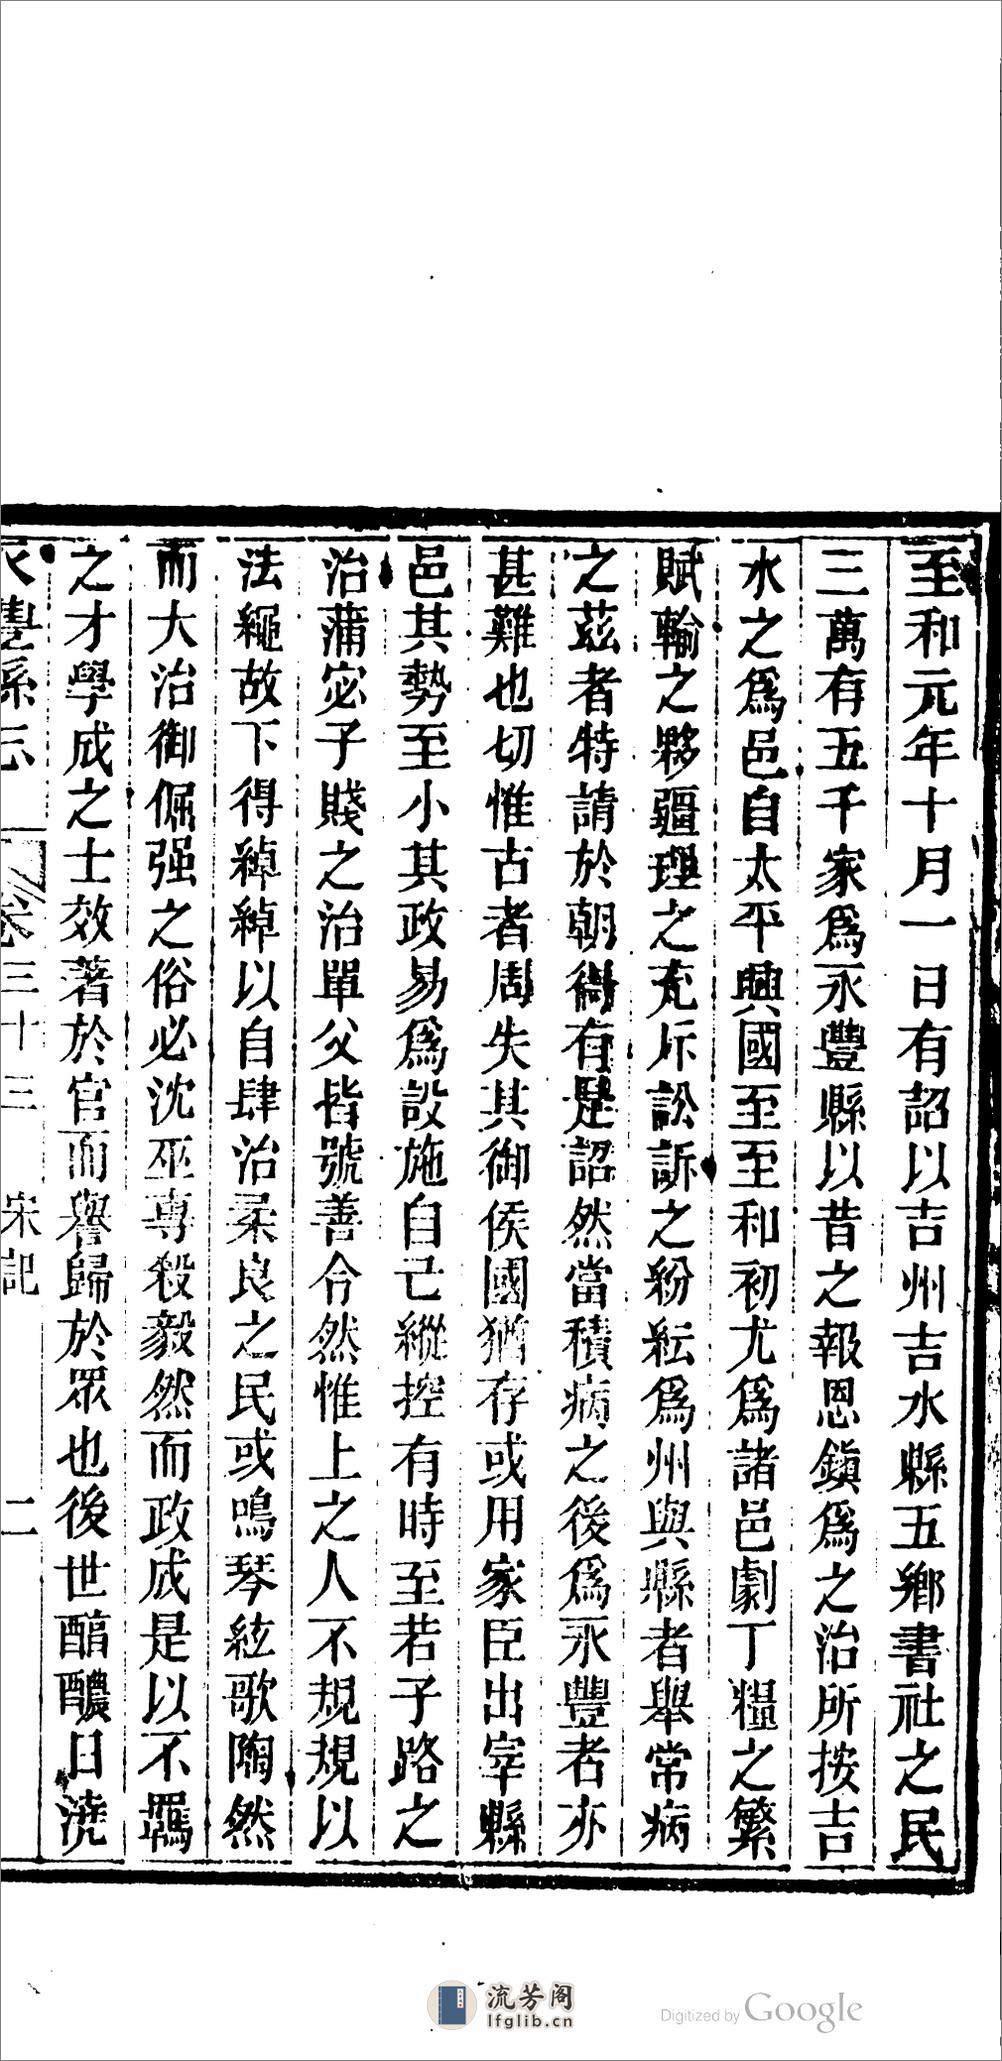 至和元年十月一日有詔以吉州吉水縣五鄉書社之民
三萬有五千家爲永豐縣以昔之報恩鎭爲之治所按吉
水之爲邑自太平興國至至和初尤爲諸邑劇丁糧之繁
賦輸之夥疆理之充斥訟訴之紛紜爲州與縣者舉常病
之茲者特請於朝得有是詔然當積病之後爲永豐者亦
甚難也切惟古者周失其御侯國猶存或用家臣出宰縣
邑其勢至小其政易爲設施自己縱控有時至若子路之
治蒲宓子賤之治單父皆號善令然惟上之人不規規以
法繩故下得綽綽以自肆治柔良之民或鳴琴絃歌陶然
而大治御倔强之俗必沈巫專殺毅然而政成是以不羈
之才學成之士效著於官而譽歸於眾也後世醕醲日澆
永豐縣志 卷三十三 宋記 二
流芳阁
lfglib.cn
Digitized by Google